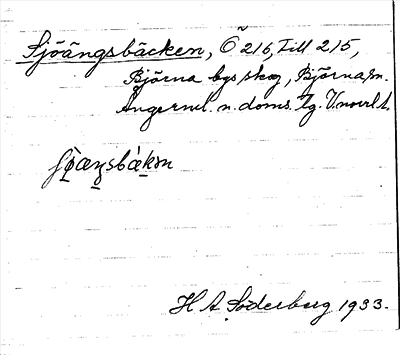 Sjöängsbäcken, Ö 216, till 215,
Björna bys skog, Björna sn.
Ångerml. n. doms. tg. V.norrl. l.
H A Söderberg 1933.